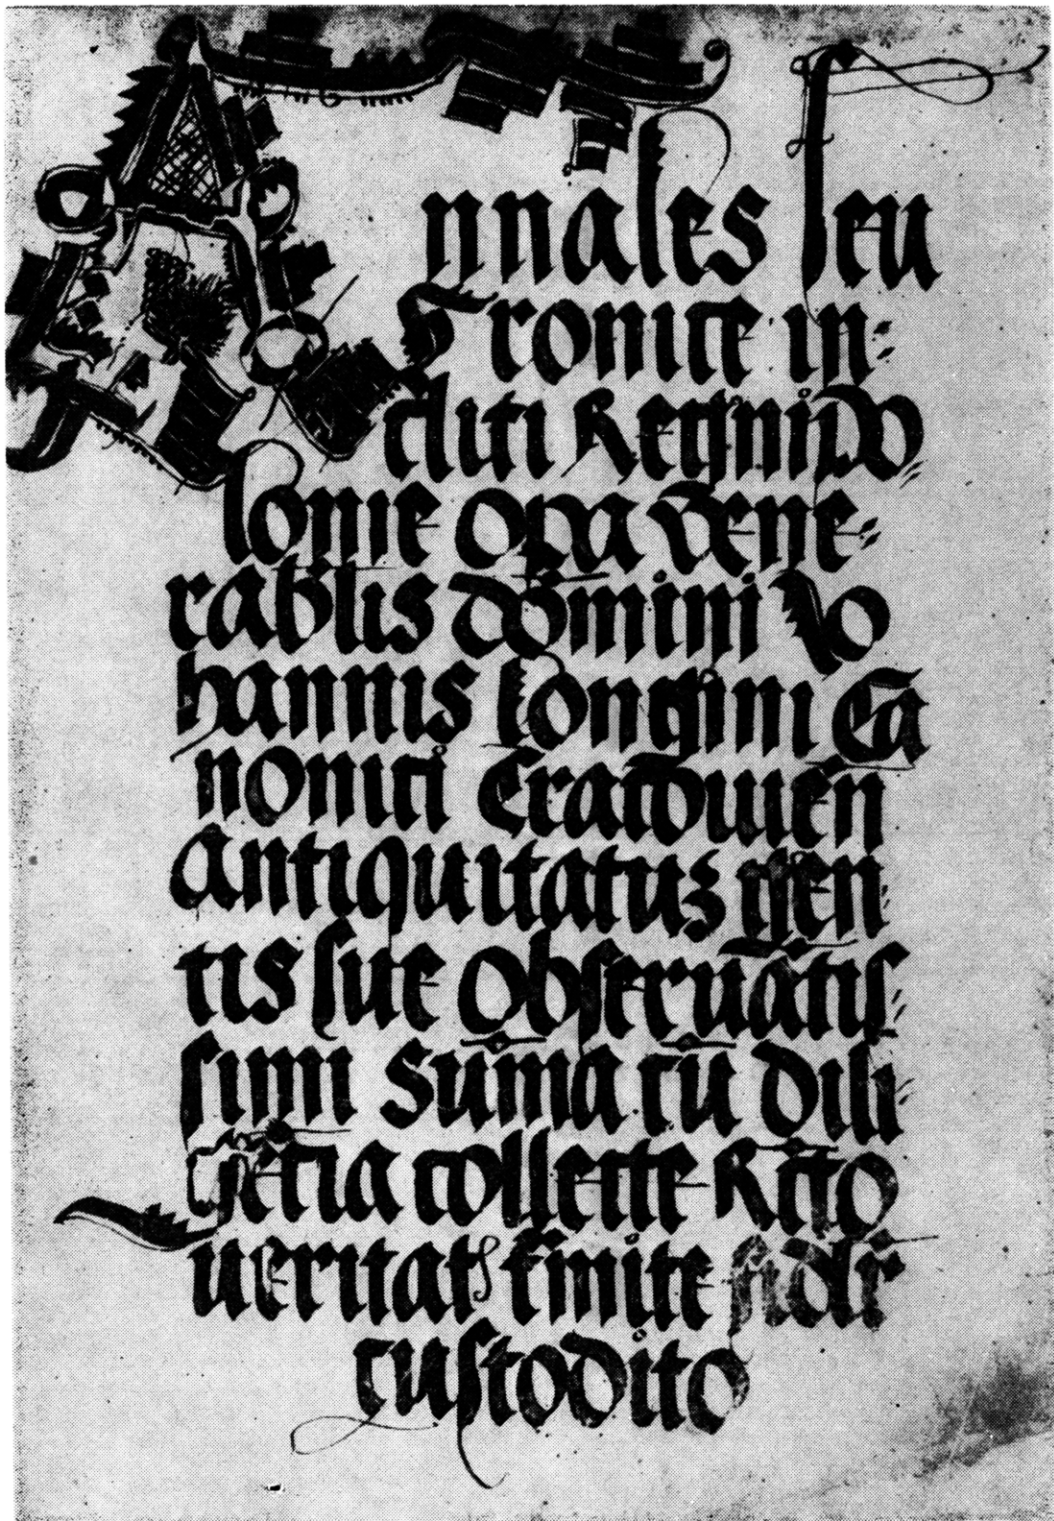 Annales seu
cronice in-
cliti Regni po
lonie opa vene-
rabilis domini Io
hannis longini Ca
nonici Cracouien
antiquitatuʒ gen
tis sue obseruātis-
simi sūma cū dili-
gētia collecte Rcto
ueritatis tramite
custodito